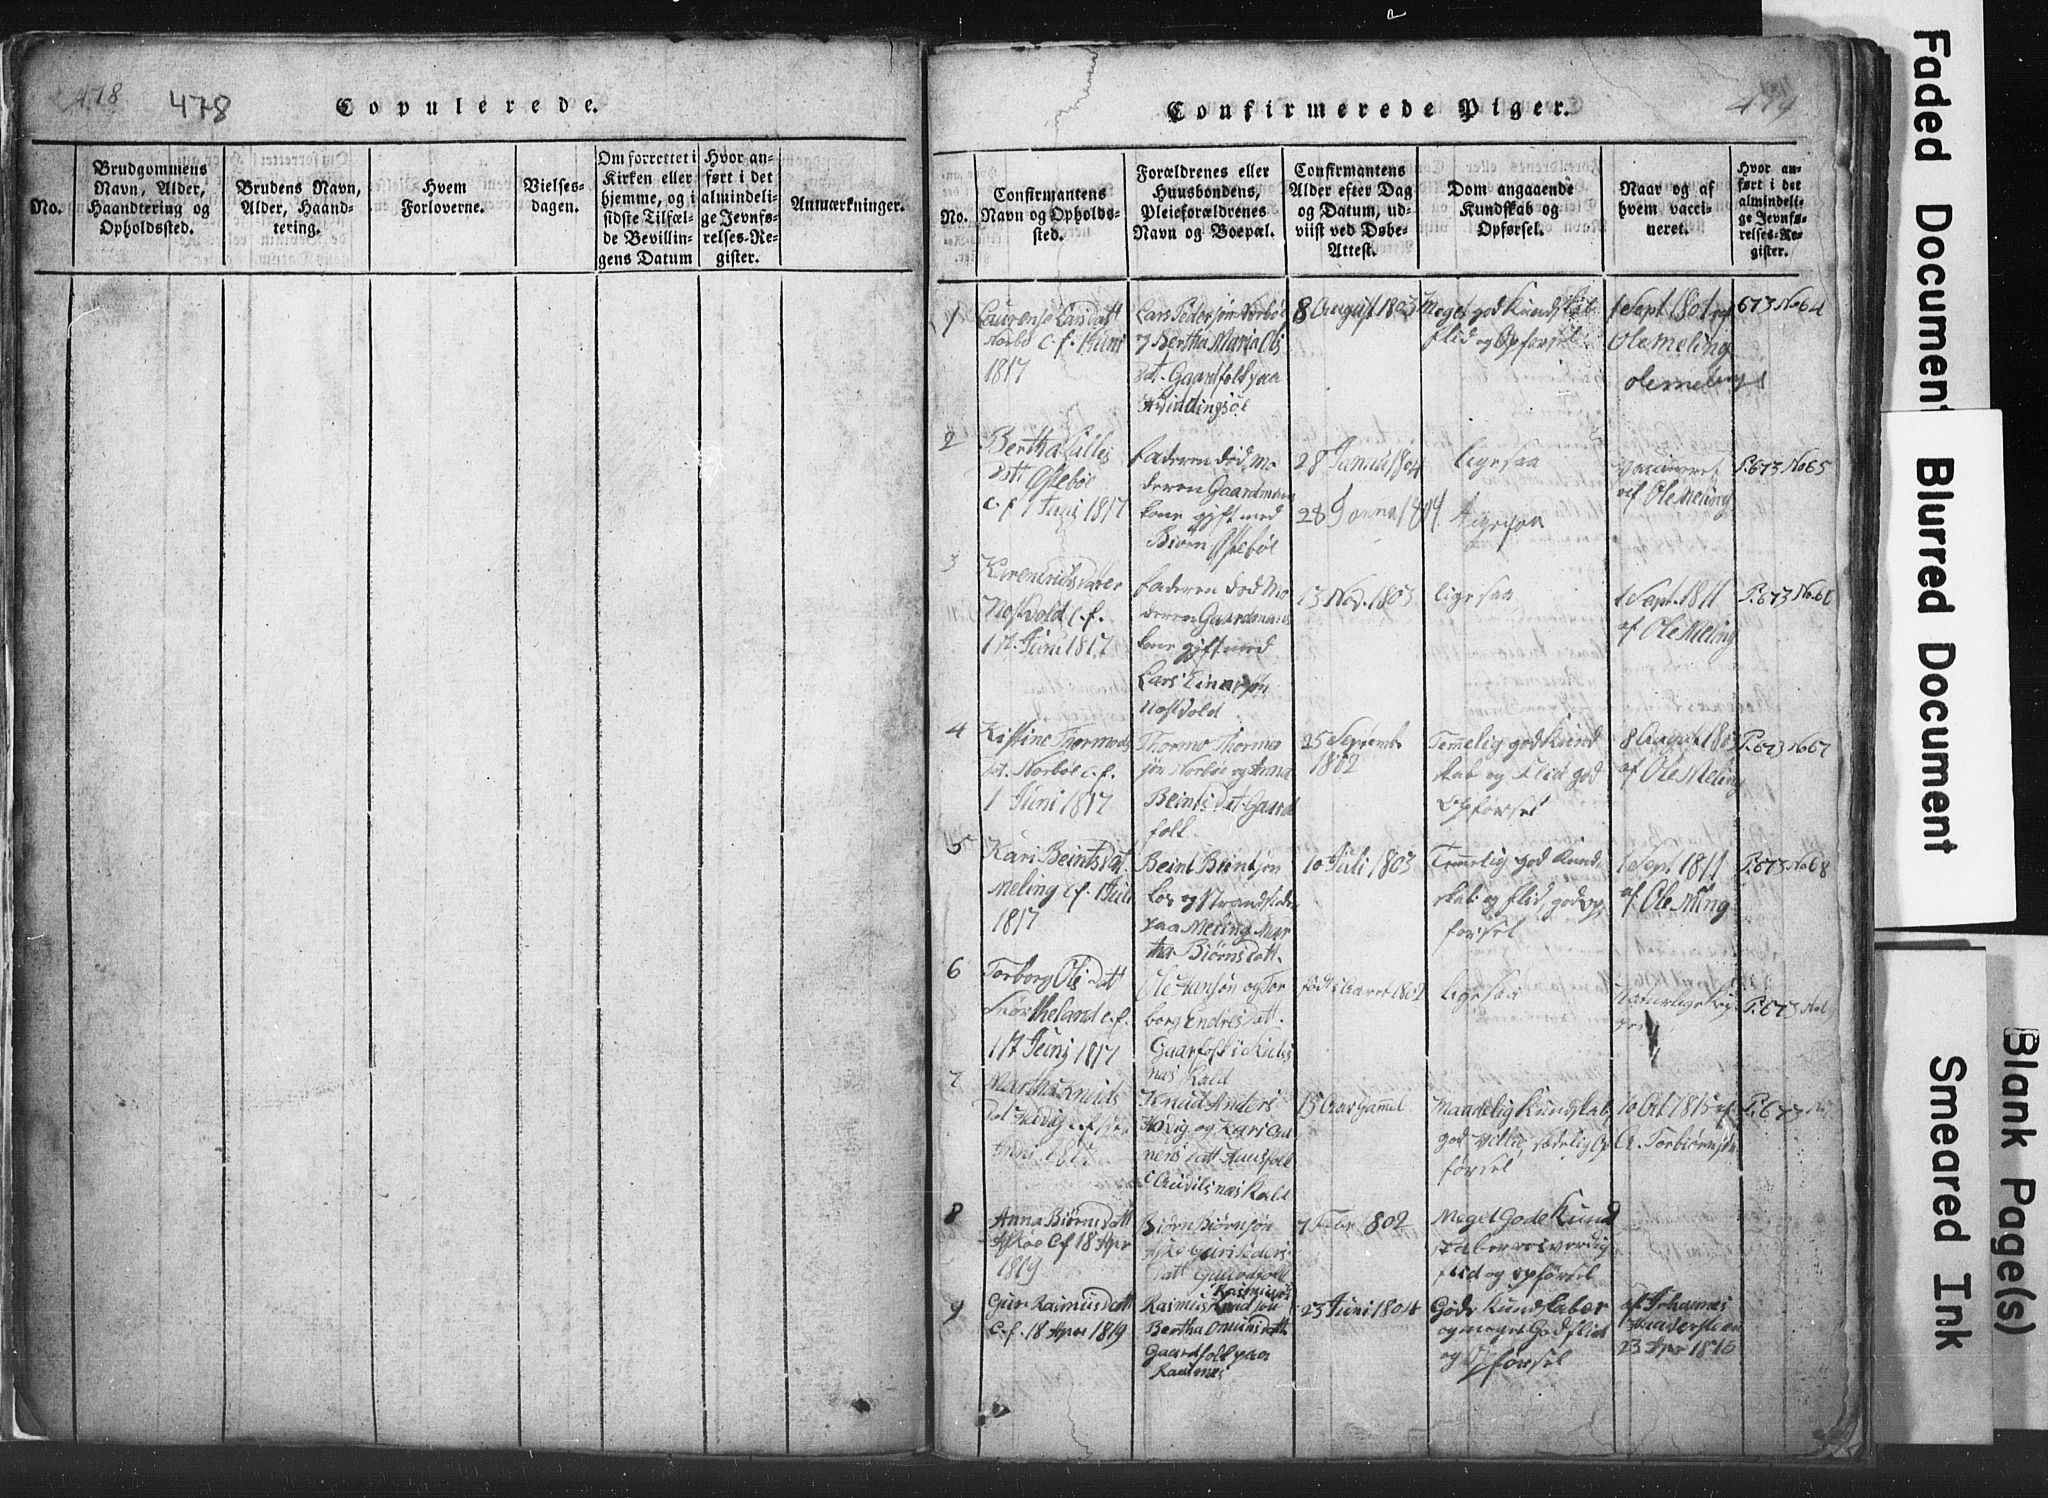 478 478
Copulerede.
No.
Brudgommens
Navn, Alder,
Haandtering og
Opholdssted.
Brudens Navn,
Alder, Haand-
tering.
Hvem
Forloverne.
Vielses-
dagen.
Om forrettet i
Kirken eller
hjemme, og i
sidste Tilfæl-
de Bevillin-
gens Datum
Hvor an-
ført i det
almindeli-
ge Jevnfø-
relses-Re-
gister.
Anmærkninger.
479
Confirmerede Piger.
No.
Confirmantens
Navn og Opholds-
sted.
Forældrenes eller
Huusbondens,
Pleieforældrenes
Navn og Boepæl.
Confirmantens
Alder efter Dag
og Datum, ud-
viist ved Døbe-
Attest.
Dom angaaende
Kundskab og
Opførsel.
Naar og af
hvem vacci-
neret.
Hvor an-
ført i det
almindeli-
ge Jevnfø-
relses-Re-
gister.
1
Laurense Larsdatt
Norbø C. f. 1 Juni
1817
Lars Pedersøn Norbøe
og Bertha Maria Ols
dat. Gaardfolk paa
8 August 1803
Meget god Kundskab
flid og Opførsel
1 Sept 1801 af
Ole Meling
Ole Meling
673 No 64
2
Bertha
datt Østebøe
C. f 1 Juni 1817
faderen død, mo
deren Gaardmans
kone gift med
Biørn Østebøe
28 Janua 1804
28 Janua 1804
ligesaa
Ligesaa
vaccineret
af Ole Meling
P. 673 No 65
3
Karen datter
Nostvold C. f.
1 Juni 1817
faderen død Mo
deren Gaardmans
kone gift med
Lars Einersøn
Nostvold
13 Nov. 1803
ligesaa
1 Sept. 1811
af Ole Meling
P. 673 No. 66
4
Kistine Thormods
dat. Norbøe C. f.
1 Juni 1817
Thormo Thormo
søn Norbøe og Anna
Beints dat. Gaard
folk.
25 Septembr
1802
Temmelig god Kund
skab og Flid god
Opførsel
8 August
af Ole Meling
P. 673 No 67
5
Kari Beints dat.
Meling C. f. 1 Juni
1817
Beint Beintsøn
Los og Strandsider
paa Meling Mar
tha Biørnsdatt.
10 Juli 1803
Temmelig god Kund
skab og flid, god op
førsel
1 Sept. 1811
af Ole Meling
P. 673 No 68
6
Torborg Ols datt
C. f.
1 Juni 1817
Ole Hansøn og Tor
borg Endres datt.
Gaarfolk i
født i Aaret 1802
ligesaa
Naturlige
P. 673 No
7
Martha Knuds
dat C. f.
Knud Anders
og Kari
15 Aar Gammel
Maadelig Kundskab
god villie, sædelig Op
førsel
10 Oct. 1815 af
A. Torbiørnsen
P. 673
8
Anna Biørnsdatt
Askøe C. f 18 Apr
1819
Biørn Biørnsøn
Askø Guri Peders
datt Gaardfolk
7 Febr 1802
Meget Gode Kund
skaber rosværdig
flid og opførsel
9
Guri Rasmus datt
C. f. 18 Apr 1819
Rasmus Knudsøn
Bertha datt
Gaardfolk paa
23 Juni 1804
Gode Kundskaber
og meget God flid
og Opførsel
af Johannes
23 Apr 1816
Faded Document
Blurred Document
Blank Page(s)
Smeared Ink